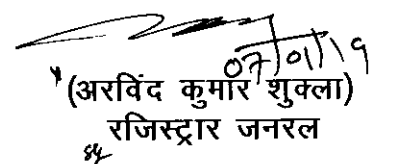 07/01/19
(अरविंद कुमार शुक्ला)
रजिस्ट्रार जनरल